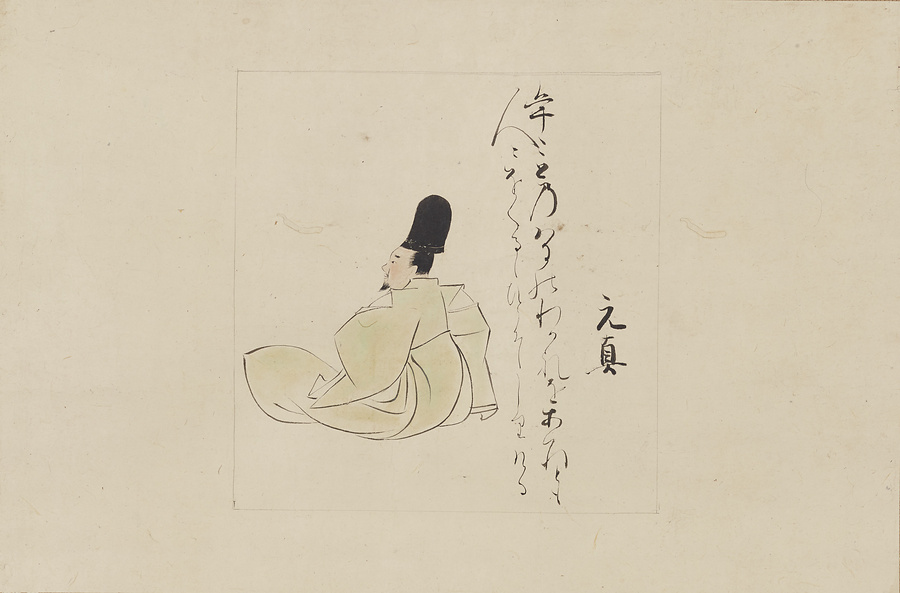 元真
年ことのはるのわかれをあはれとも
人におくるゝひとそしりける